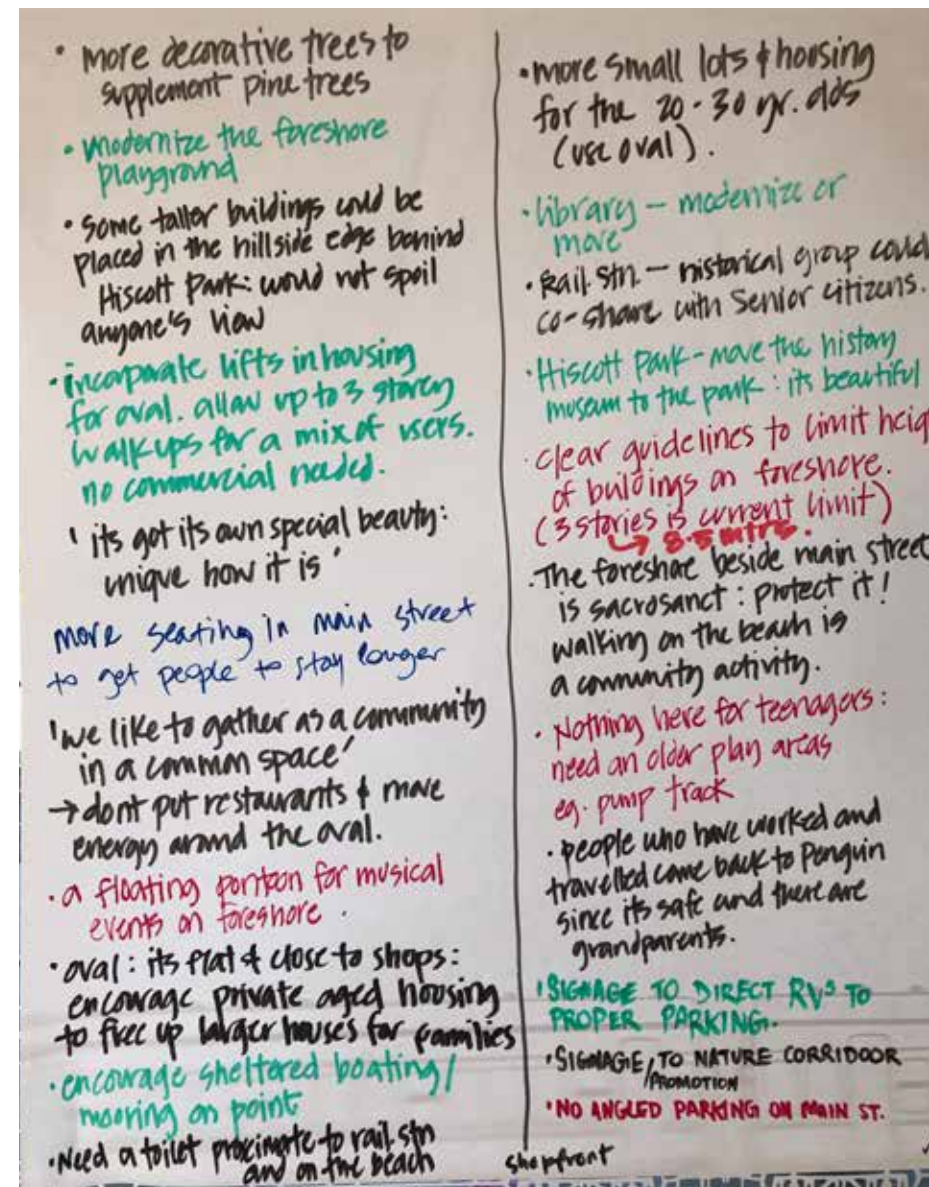 • more decorative trees to
supplement pine trees
• modernize the foreshore
playground
• some taller buildings could be
placed in the hillside edge behind
Hiscott Park: would not spoil
anyone's view
• incorporate lifts in housing
for oval. allow up to 3 storey
walkups for a mix of users.
no commercial needed.
' its got its own special beauty:
unique how it is '
more seating in main street
to get people to stay longer
'we like to gather as a community
in a common space'
→ dont put restaurants & more
energy around the oval.
• a floating pontoon for musical
events on foreshore.
• oval: its flat & close to shops:
encourage private aged housing
to free up larger houses for families
• encourage sheltered boating/
mooring on point
• Need a toilet proximate to rail stn
and on the beach
• more small lots & housing
for the 20-30 yr. olds
(use oval).
• library – modernize or
move
• Rail stn. – historical group could
co-share with Senior citizens.
• Hiscott Park – move the history
museum to the park: its beautiful
• clear guidelines to limit heig
of buildings on foreshore.
(3 stories is current limit)
↳ 8.5 mtrs.
• The foreshore beside main street
is sacrosanct: protect it!
walking on the beach is
a community activity.
• Nothing here for teenagers:
need an older play areas
eg. pump track
• people who have worked and
travelled came back to Penguin
since its safe and there are
grandparents.
• SIGNAGE TO DIRECT RVS TO
PROPER PARKING.
• SIGNAGE/PROMOTION TO NATURE CORRIDOOR
• NO ANGLED PARKING ON MAIN ST.
shopfront